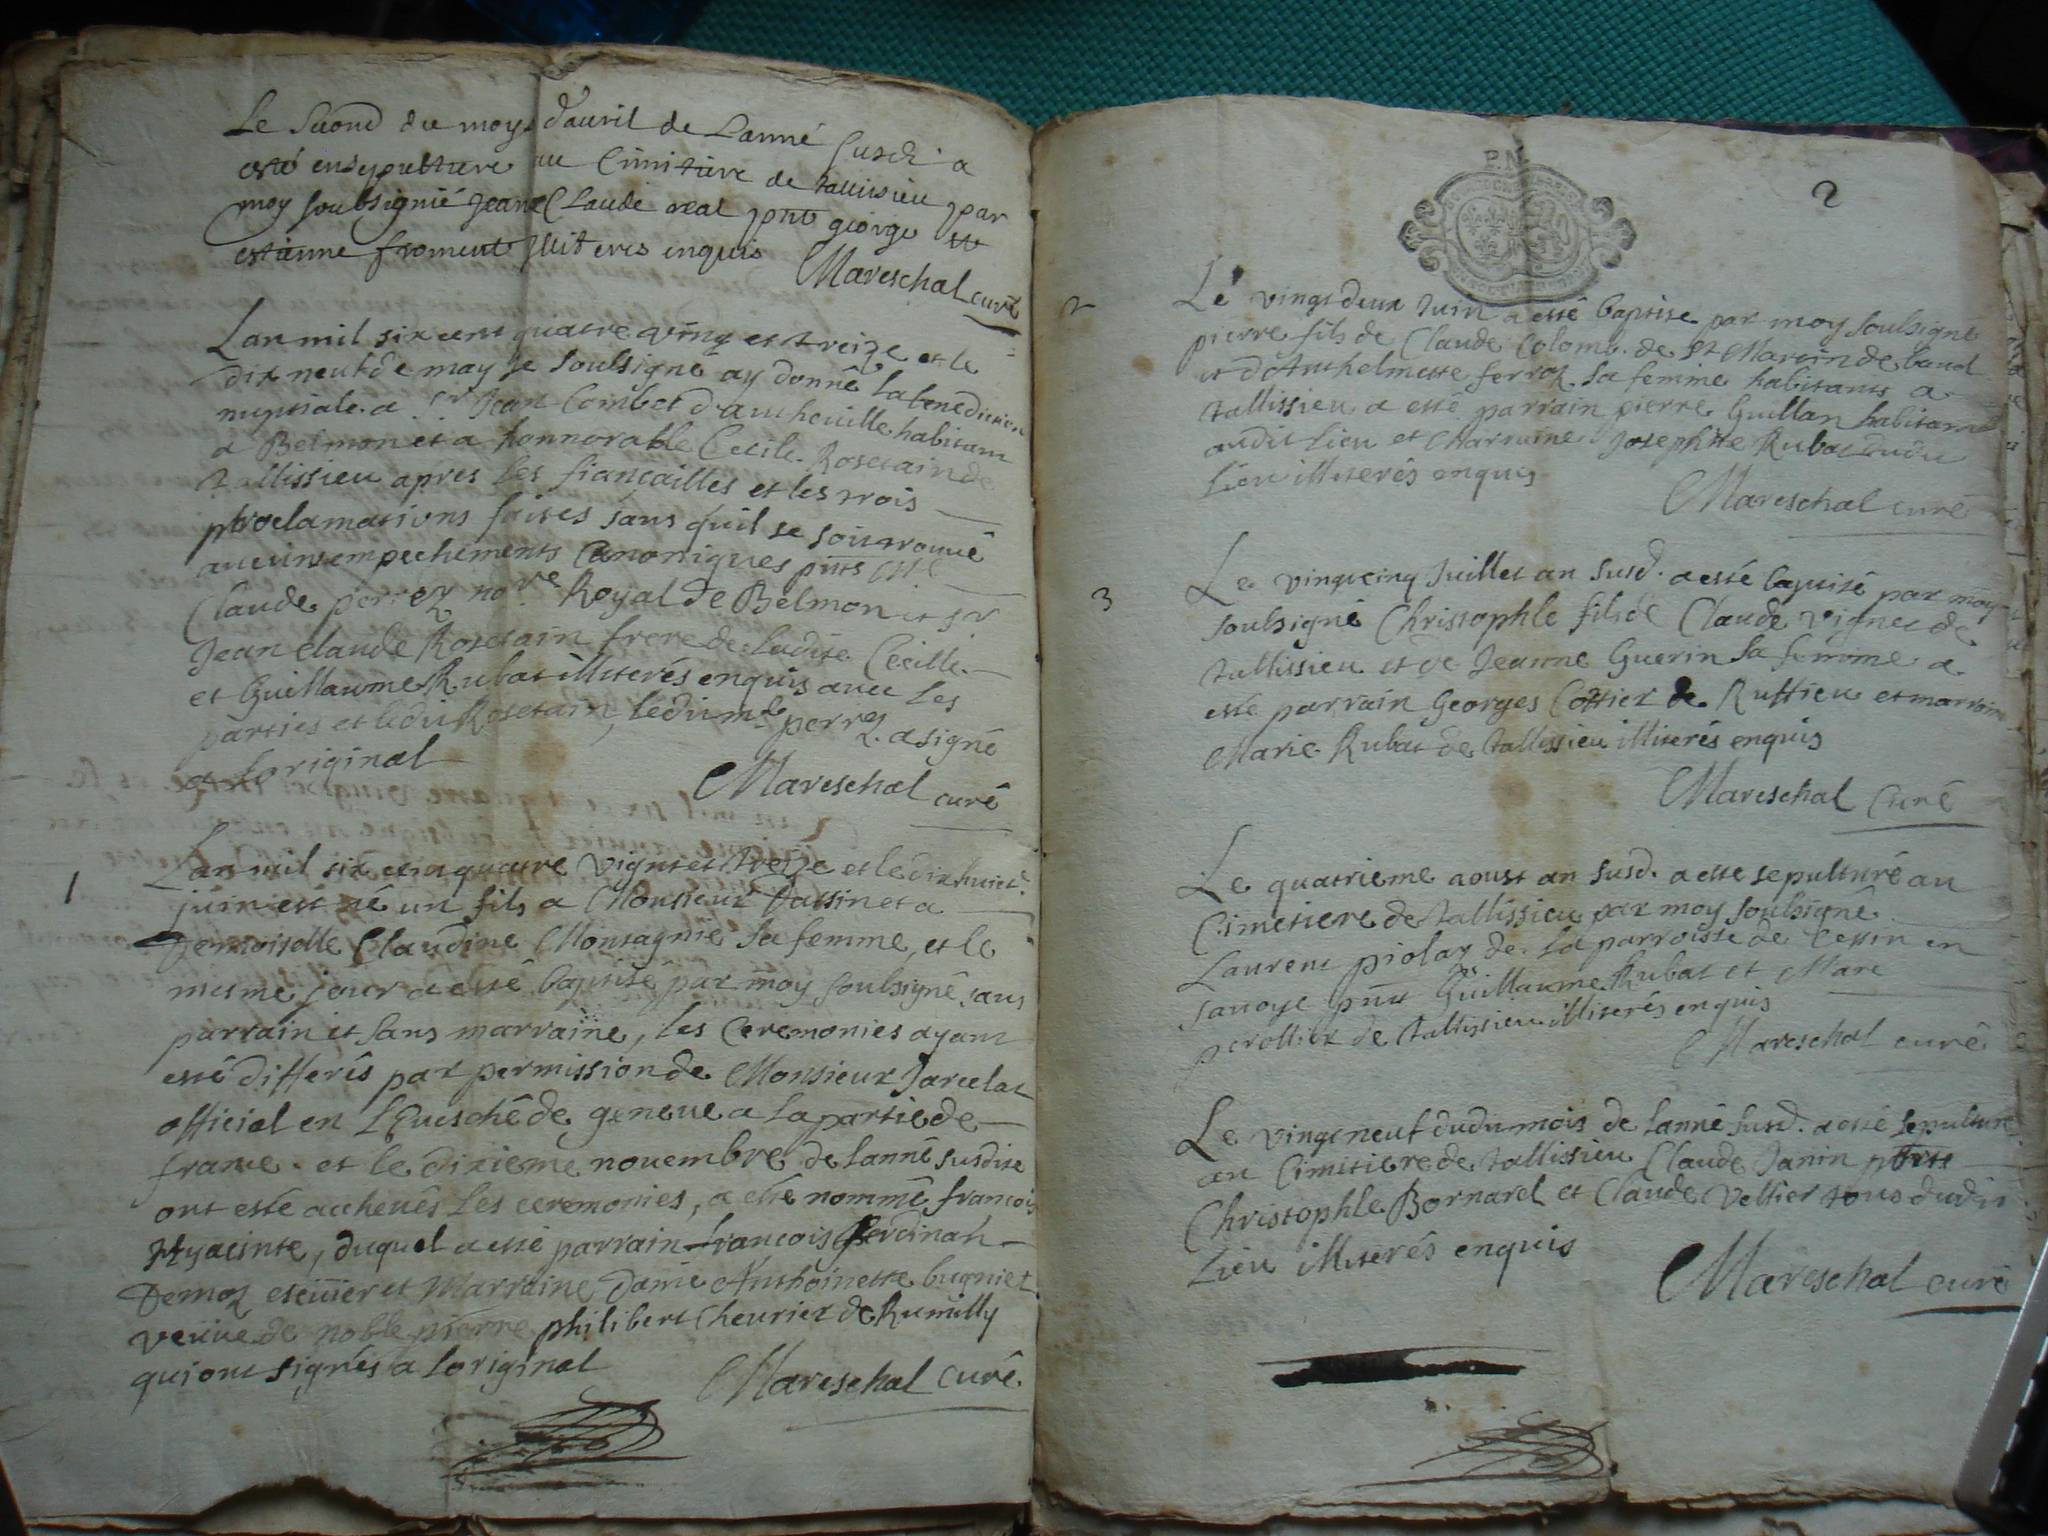 Le second du moys d'auril de Lanné susd. a
esté ensepulturé au Cimitiere de tallissieu par
moy soubsigné Jean Claude real pnt george et
estienne froment illiteres enquis
Mareschal curé
Lan mil six cent quatre vingt et treize et le
dix neuf de may je soubsigné ay donné la benediction
nuptiale a Sr Jean Combet d'antheuille habitant
a Belmon et a honnorable Cecile Rosetain de
tallissieu apres les fiançailles et les trois
proclamations faites sans quil se soit trouué
aucuns empechements Canoniques pnts Mre
Claude perrez nore Royal de Belmon et sr
Jean claude Rosetain frere de ladite Cecille
et Guillaume Rubat illiterés enquis auec les
parties et ledit Rosetain, ledit mre perrez a signé
a loriginal
Mareschal curé
1
Lan mil six cent quatre vignt et treize et le dix huict
juin est né un fils a Monsieur Passin et a
Demoiselle Claudine Montagnie sa femme, et le
mesme jour a esté baptisé par moy soubsigné sans
parrain et sans marraine, les Ceremonies ayant
esté differés par permission de Monsieur Jarcelat
official en L'Eueschê de geneue a la partie de
france. et le dixieme nouembre de lanné susdite
ont esté acheués les ceremonies, a esté nommé francois
Hyacinte, duquel a esté parrain francois ferdinan
Demoz escuier et Marraine Dame Anthoinette bugniet
veuue de noble pierre philibert Cheurier de Rumilly
qui ont signés a loriginal
Mareschal curé.
P.N
2
2
Le vingt deux Juin a esté baptisé par moy soubsigné
pierre fils de Claude Colomb. de St Martin de bauel
et d'Anthelmette ferroz sa femme habitants a
tallissieu a esté parrain pierre Guillan habitant
audit Lieu et Marraine Josephte Rubat dudit
Lieu illiterés enquis
Mareschal curé
3
Le vingt cinq Juillet an susd. a esté baptisé par moy
soubsigné Christophle fils de Claude Vignet de
tallissieu et de Jeanne Guerin sa femme a
esté parrain Georges Cottier de Ruffieu et marraine
Marie Rubat de tallissieu illiterés enquis
Mareschal Curé
Le quatrieme aoust an susd. a esté sepulturé au
Cimetiere de tallissieu par moy soubsigné
Laurent piolaz de la parroisse de Cessin en
sauoye pnts Guillaume Rubat et Marc
perollier de tallissieu illiterés enquis
Mareschal curé
Le vingt neuf dudit mois de lanné susd. a esté sepulturé
au Cimitiere de tallissieu Claude Janin
Christophle Bornarel et Claude Vellier tous dudit
Lieu illiterés enquis
Mareschal curé